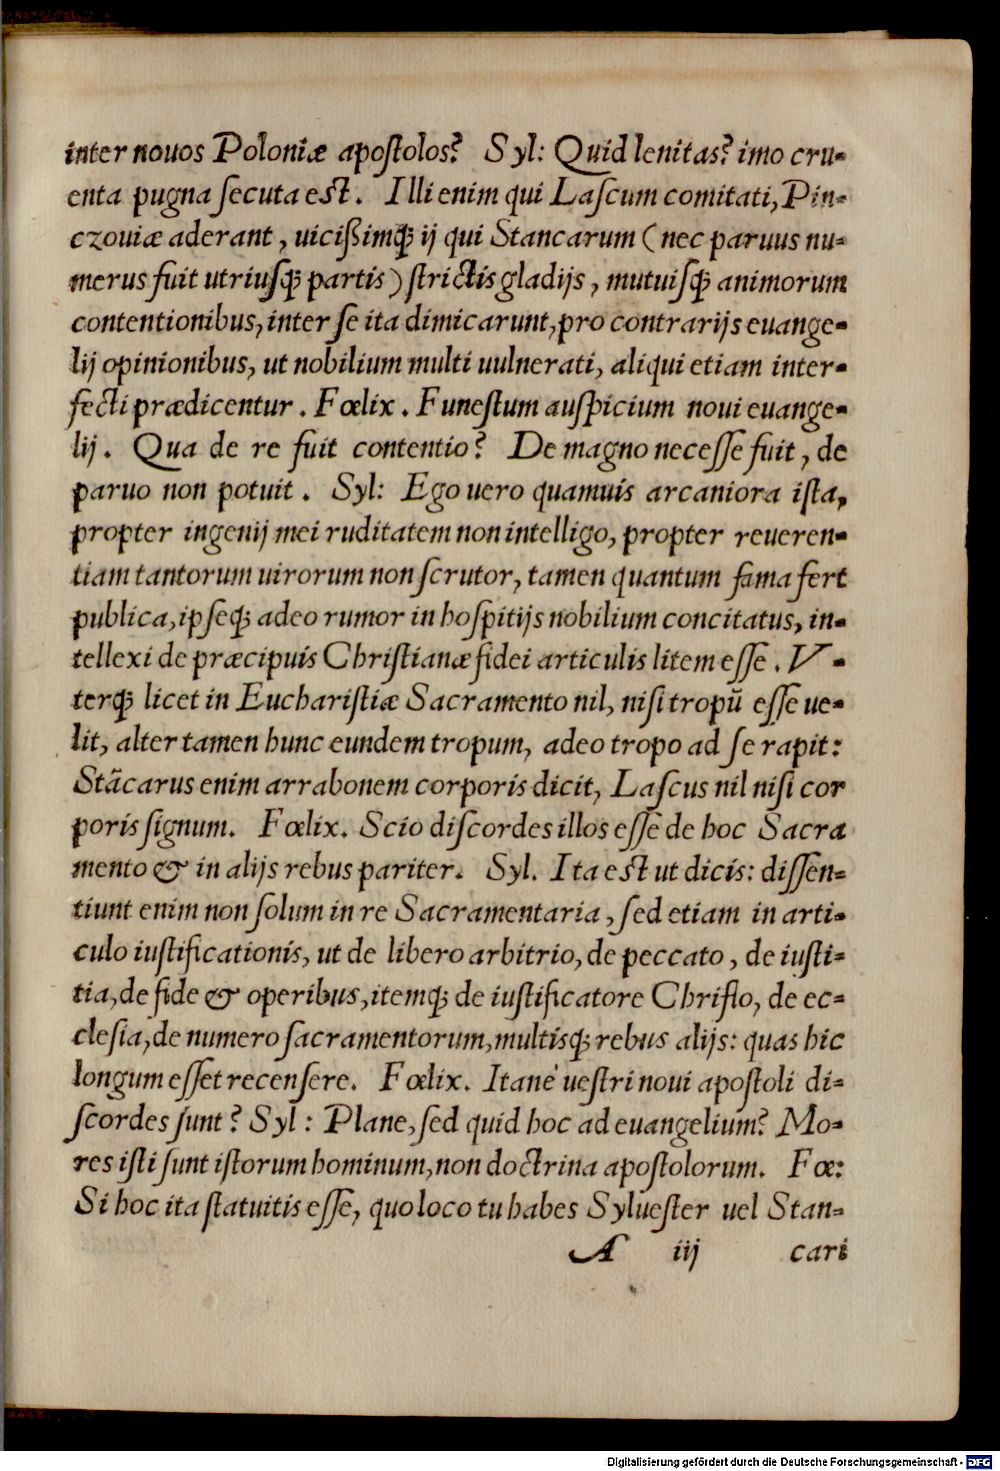 inter nouos Poloniæ apoſtolos? Syl: Quid lenitas? imo cru-
enta pugna ſecuta eſt. Illi enim qui Laſcum comitati, Pin-
czouiæ aderant, uicißimq́; ij qui Stancarum (nec paruus nu-
merus fuit utriuſq́; partis) ſtrictis gladijs, mutuiſq́; animorum
contentionibus, inter ſe ita dimicarunt, pro contrarijs euange-
lij opinionibus, ut nobilium multi uulnerati, aliqui etiam inter-
fecti prædicentur. Fœlix. Funeſtum auſpicium noui euange-
lij. Qua de re fuit contentio? De magno neceſſe fuit, de
paruo non potuit. Syl: Ego uero quamuis arcaniora iſta,
propter ingenij mei ruditatem non intelligo, propter reueren-
tiam tantorum uirorum non ſcrutor, tamen quantum fama fert
publica, ipſeq́; adeo rumor in hoſpitijs nobilium concitatus, in-
tellexi de præcipuis Chriſtianæ fidei articulis litem eſſe. V-
terq́; licet in Euchariſtiæ Sacramento nil, niſi tropũ eſſe ue-
lit, alter tamen hunc eundem tropum, adeo tropo ad ſe rapit:
Stãcarus enim arrabonem corporis dicit, Laſcus nil niſi cor
poris ſignum. Fœlix. Scio diſcordes illos eſſe de hoc Sacra
mento & in alijs rebus pariter. Syl. Ita eſt ut dicis: diſſen-
tiunt enim non ſolum in re Sacramentaria, ſed etiam in arti-
culo iuſtificationis, ut de libero arbitrio, de peccato, de iuſti-
tia, de fide & operibus, itemq́; de iuſtificatore Chriſto, de ec-
cleſia, de numero ſacramentorum, multisq́; rebus alijs: quas hic
longum eſſet recenſere. Fœlix. Itane ueſtri noui apoſtoli di-
ſcordes ſunt? Syl: Plane, ſed quid hoc ad euangelium? Mo-
res iſti ſunt iſtorum hominum, non doctrina apoſtolorum. Fœ:
Si hoc ita ſtatuitis eſſe, quo loco tu habes Sylueſter uel Stan-
A iij cari
Digitalisierung gefördert durch die Deutsche Forschungsgemeinschaft - DFG